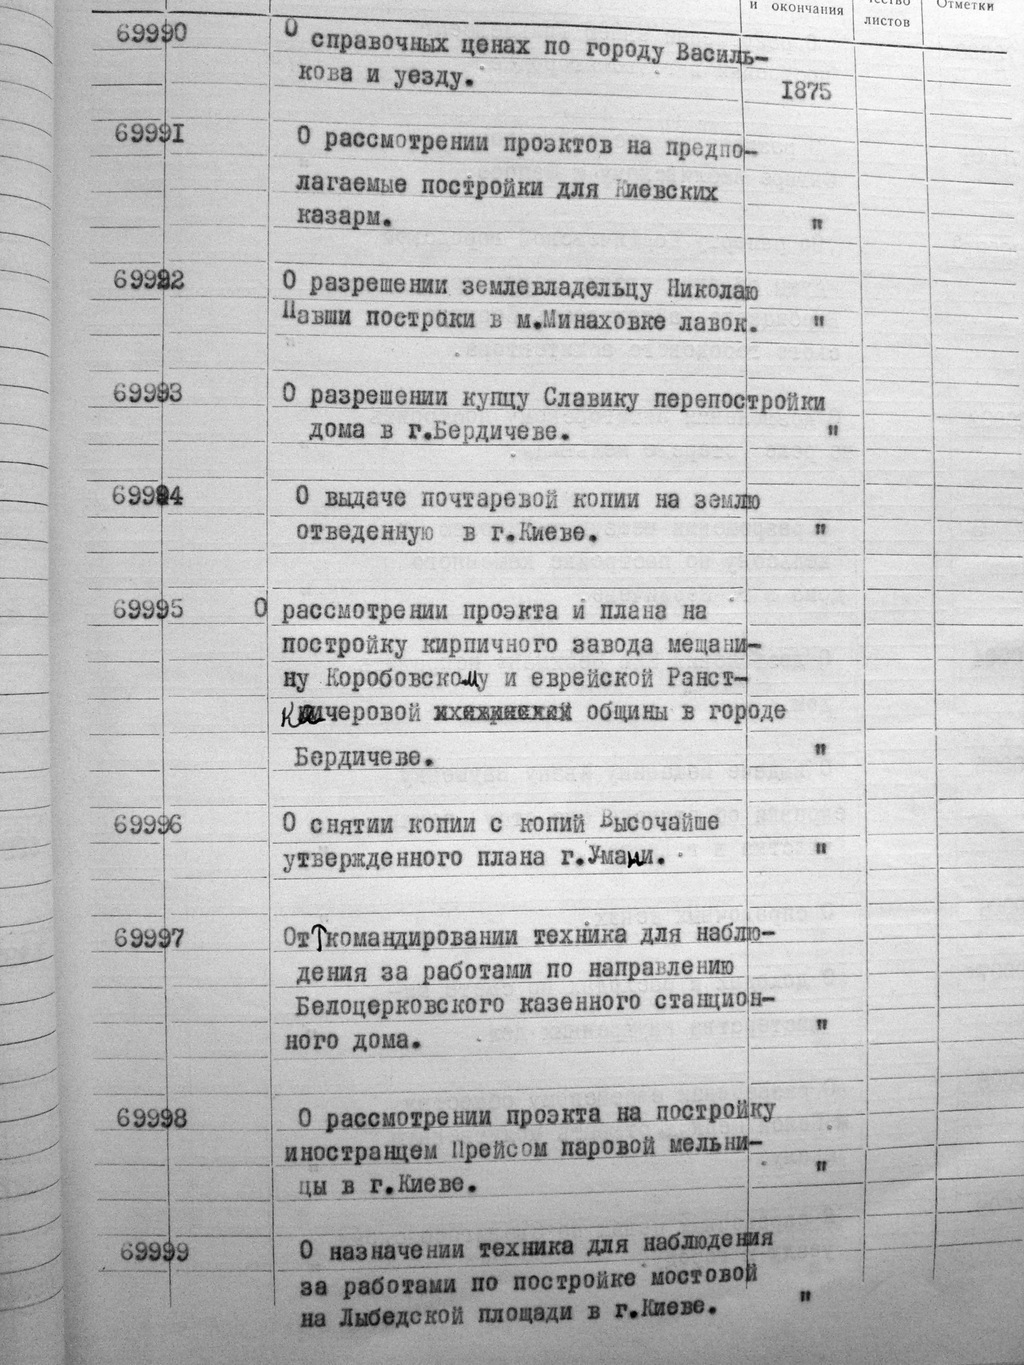 и окончания
чество
листов
Отметки
69990 О справочных ценах по городу Василь-
кова и уезду.
1875
69991 О рассмотрении проэктов на предпо-
лагаемые постройки для Киевских
казарм. "
69992 О разрешении землевладельцу Николаю
Павши построки в м.Минаховке лавок. "
69993 О разрешении купцу Славику перепостройки
дома в г.Бердичеве. "
69994 О выдаче почтаревой копии на землю
отведенную в г.Киеве. "
69995 О рассмотрении проэкта и плана на
постройку кирпичного завода мещани-
ну Коробовскому и еврейской Ранст-
ничеровой общины в городе
Бердичеве. "
69996 О снятии копии с копий Высочайше
утвержденного плана г.Умани. "
69997 От командировании техника для наблю-
дения за работами по направлению
Белоцерковского казенного станцион-
ного дома. "
69998 О рассмотрении проэкта на постройку
иностранцем Прейсом паровой мельни-
цы в г.Киеве. "
69999 О назначении техника для наблюдения
за работами по постройке мостовой
на Лыбедской площади в г.Киеве. "